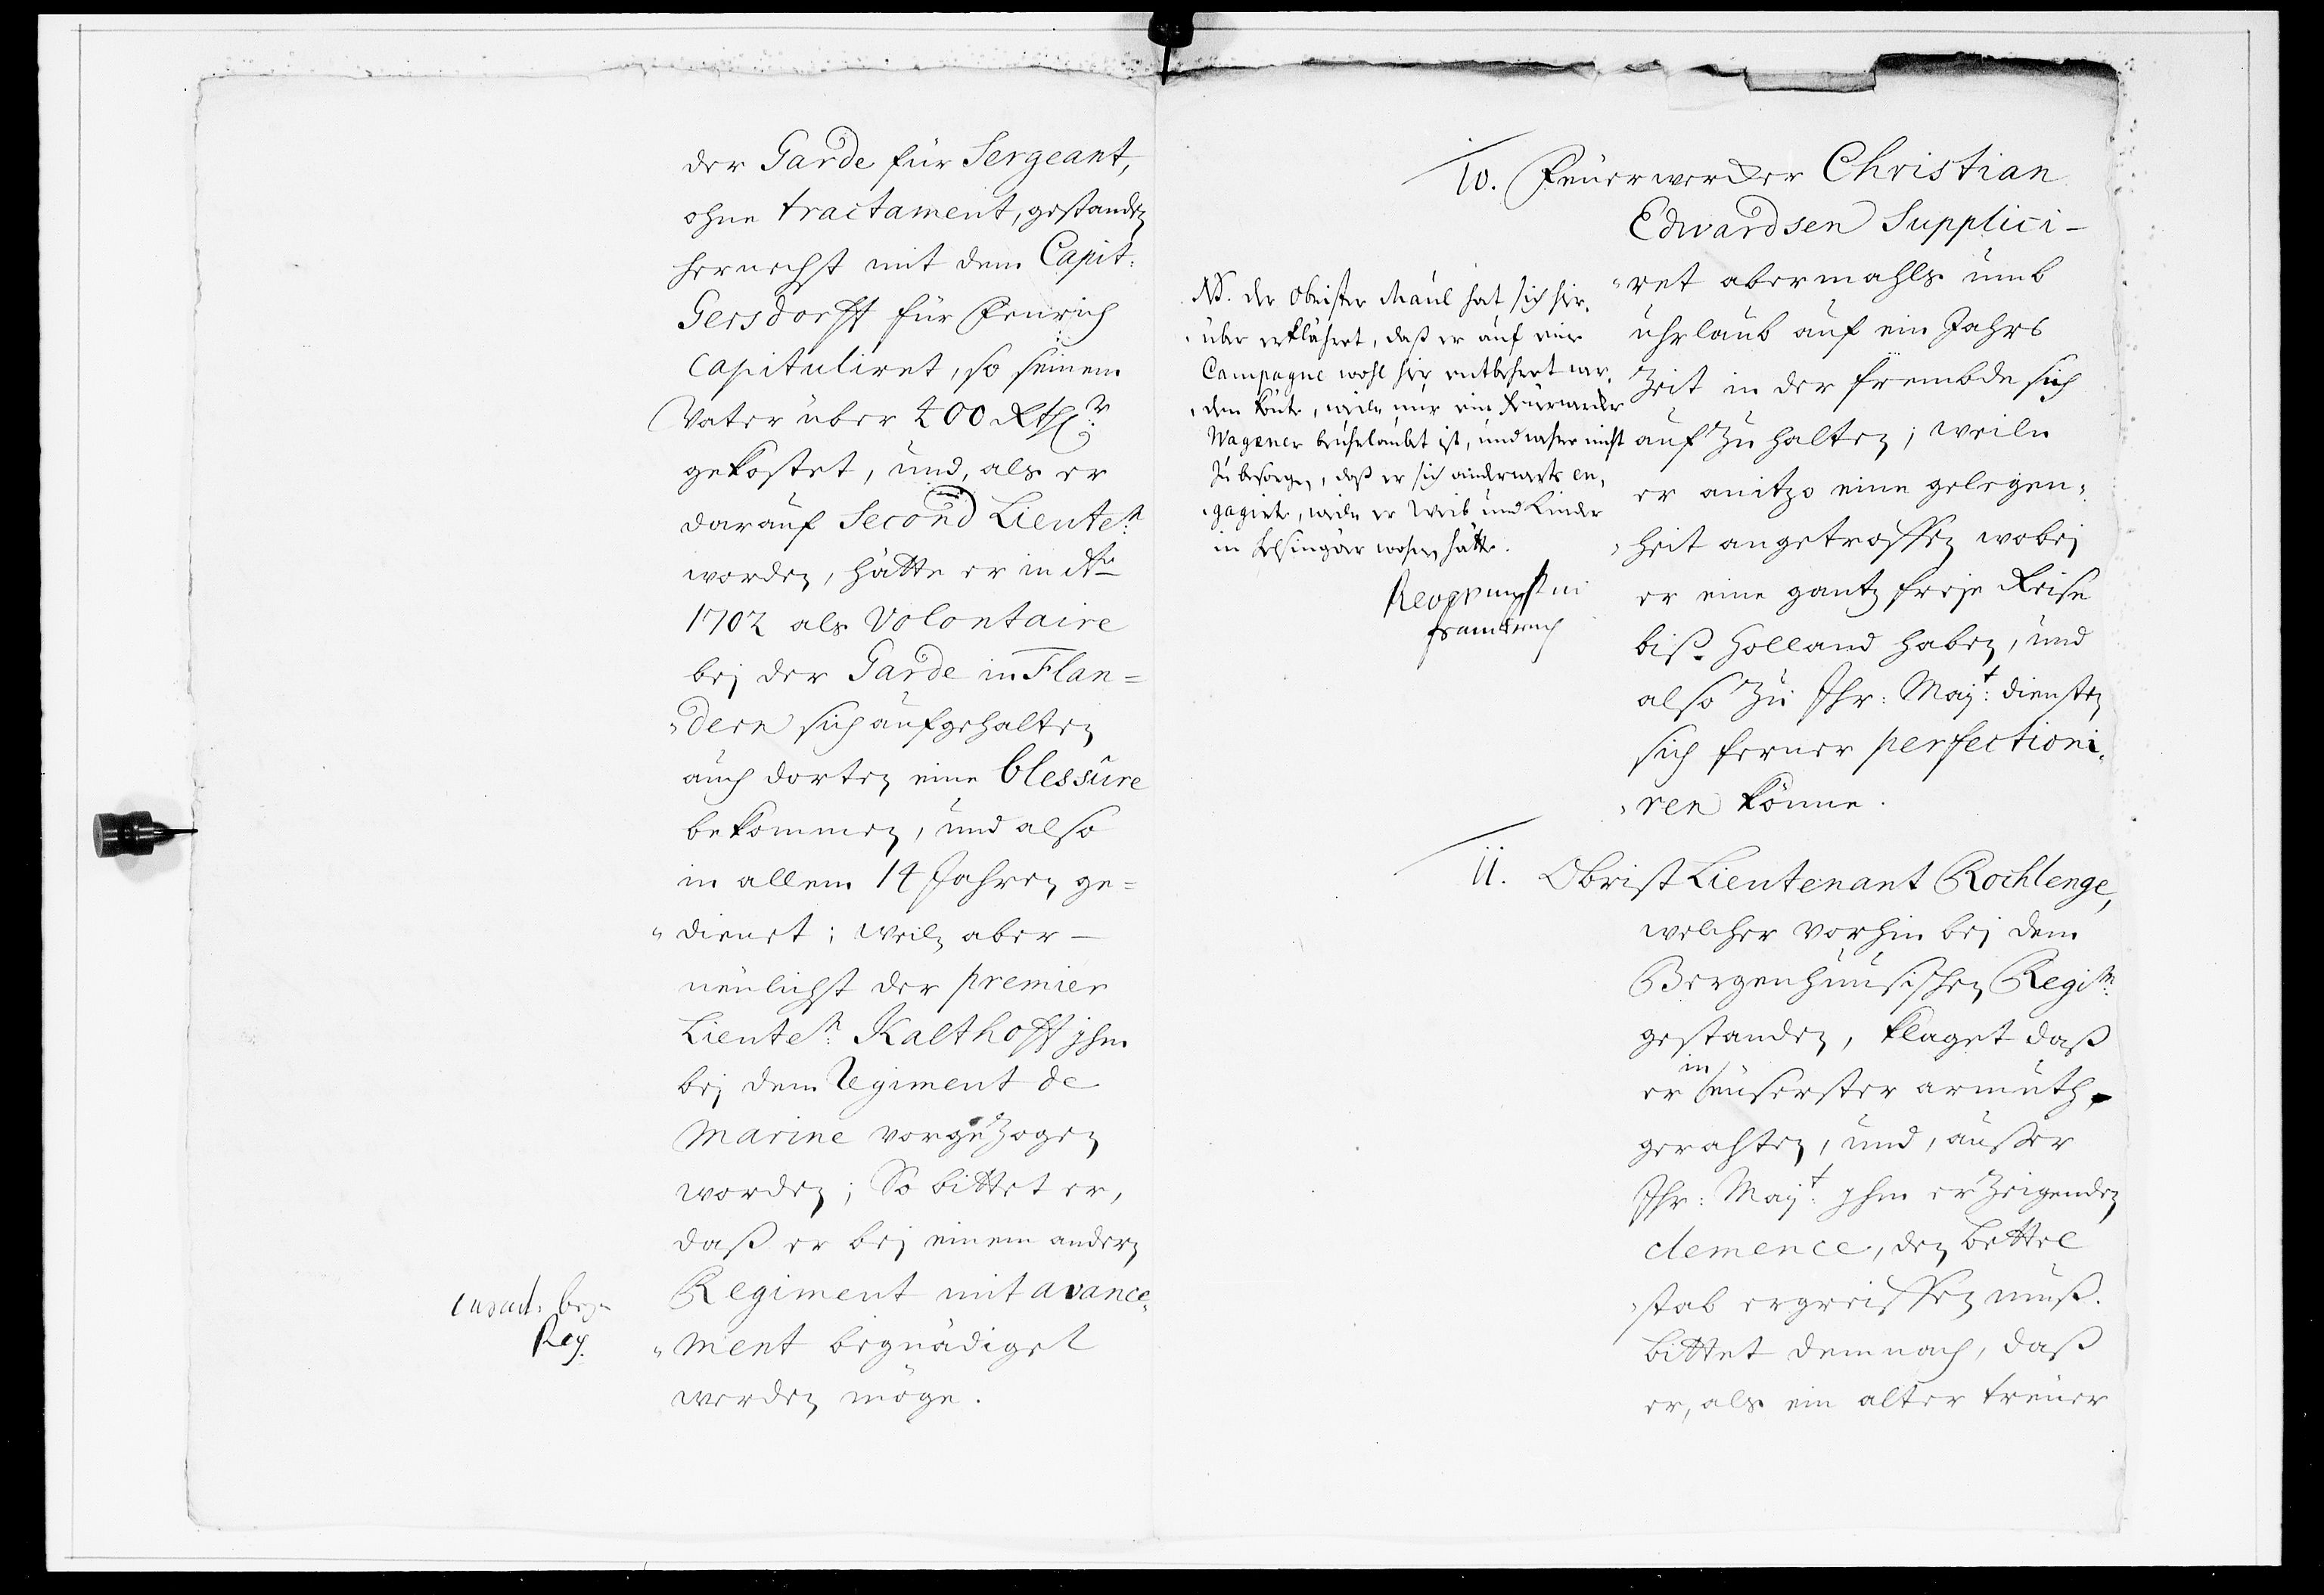 der Garde für Sergeant,
ohne tractament, gestanden
hernechst mit dem Capit:
Gersdorff für Fenrich
capituliret, so seinem
Vater über 200 Rthlr:
gekostet, und, als er
darauf Second Lieuten:
worden, hätte er in Ao
1702 als Volontaire
bej der Garde in Flan=
"dern sich aufgehalten
auch dorten eine blessûre
bekommen, und also
in allem 14 Jahren ge=
"dienet; weiln aber —
neulichst der premier
Lieuten: Kalthoff jhm
bej dem Regiment de
Marine vorgezogen
worden; So bittet er,
daß er bej einem andern
Regiment mit avance,
"ment begnädiget
werden möge.
Reg.
10. Feuerwercker Christian
Edwardsen Supplici-
"ret abermahls umb
uhrlaub auf ein Jahrs
Zeit in der frembde sich
auf zu halten; weiln
er anitzo eine gelegen,
"heit angetroffen wobej
er eine gantz freje Reise
biß Holland haben, und
also zu Ihr: Majt: diensten
sich ferner perfectioni,
"ren könne.
NB. der Obrister Maul hat sich hir,
"über erklähret, daß er auf eine
Campagne wohl hir entbehret wer,
"den könte, weiln nur ein Feuerwercker
Wagener beuhrlaubet ist, und wehre nicht
zu besorgen, daß er sich anderwerts en,
"gagirte, weiln er Weib und Kinder
in Helsingör wohnen hätte.
11. Obrist Lieutenant Rochlenge,
welcher vorhin bej dem
Bergenhuusischen Regim:
gestanden, klaget daß
er in euserster armuth
gerahten, und, außer
Ihr: Majt: jhm erzeigenden
clemence, den bettel
"stab ergreiffen muß.
bittet demnach, daß
er, als ein alter treuer